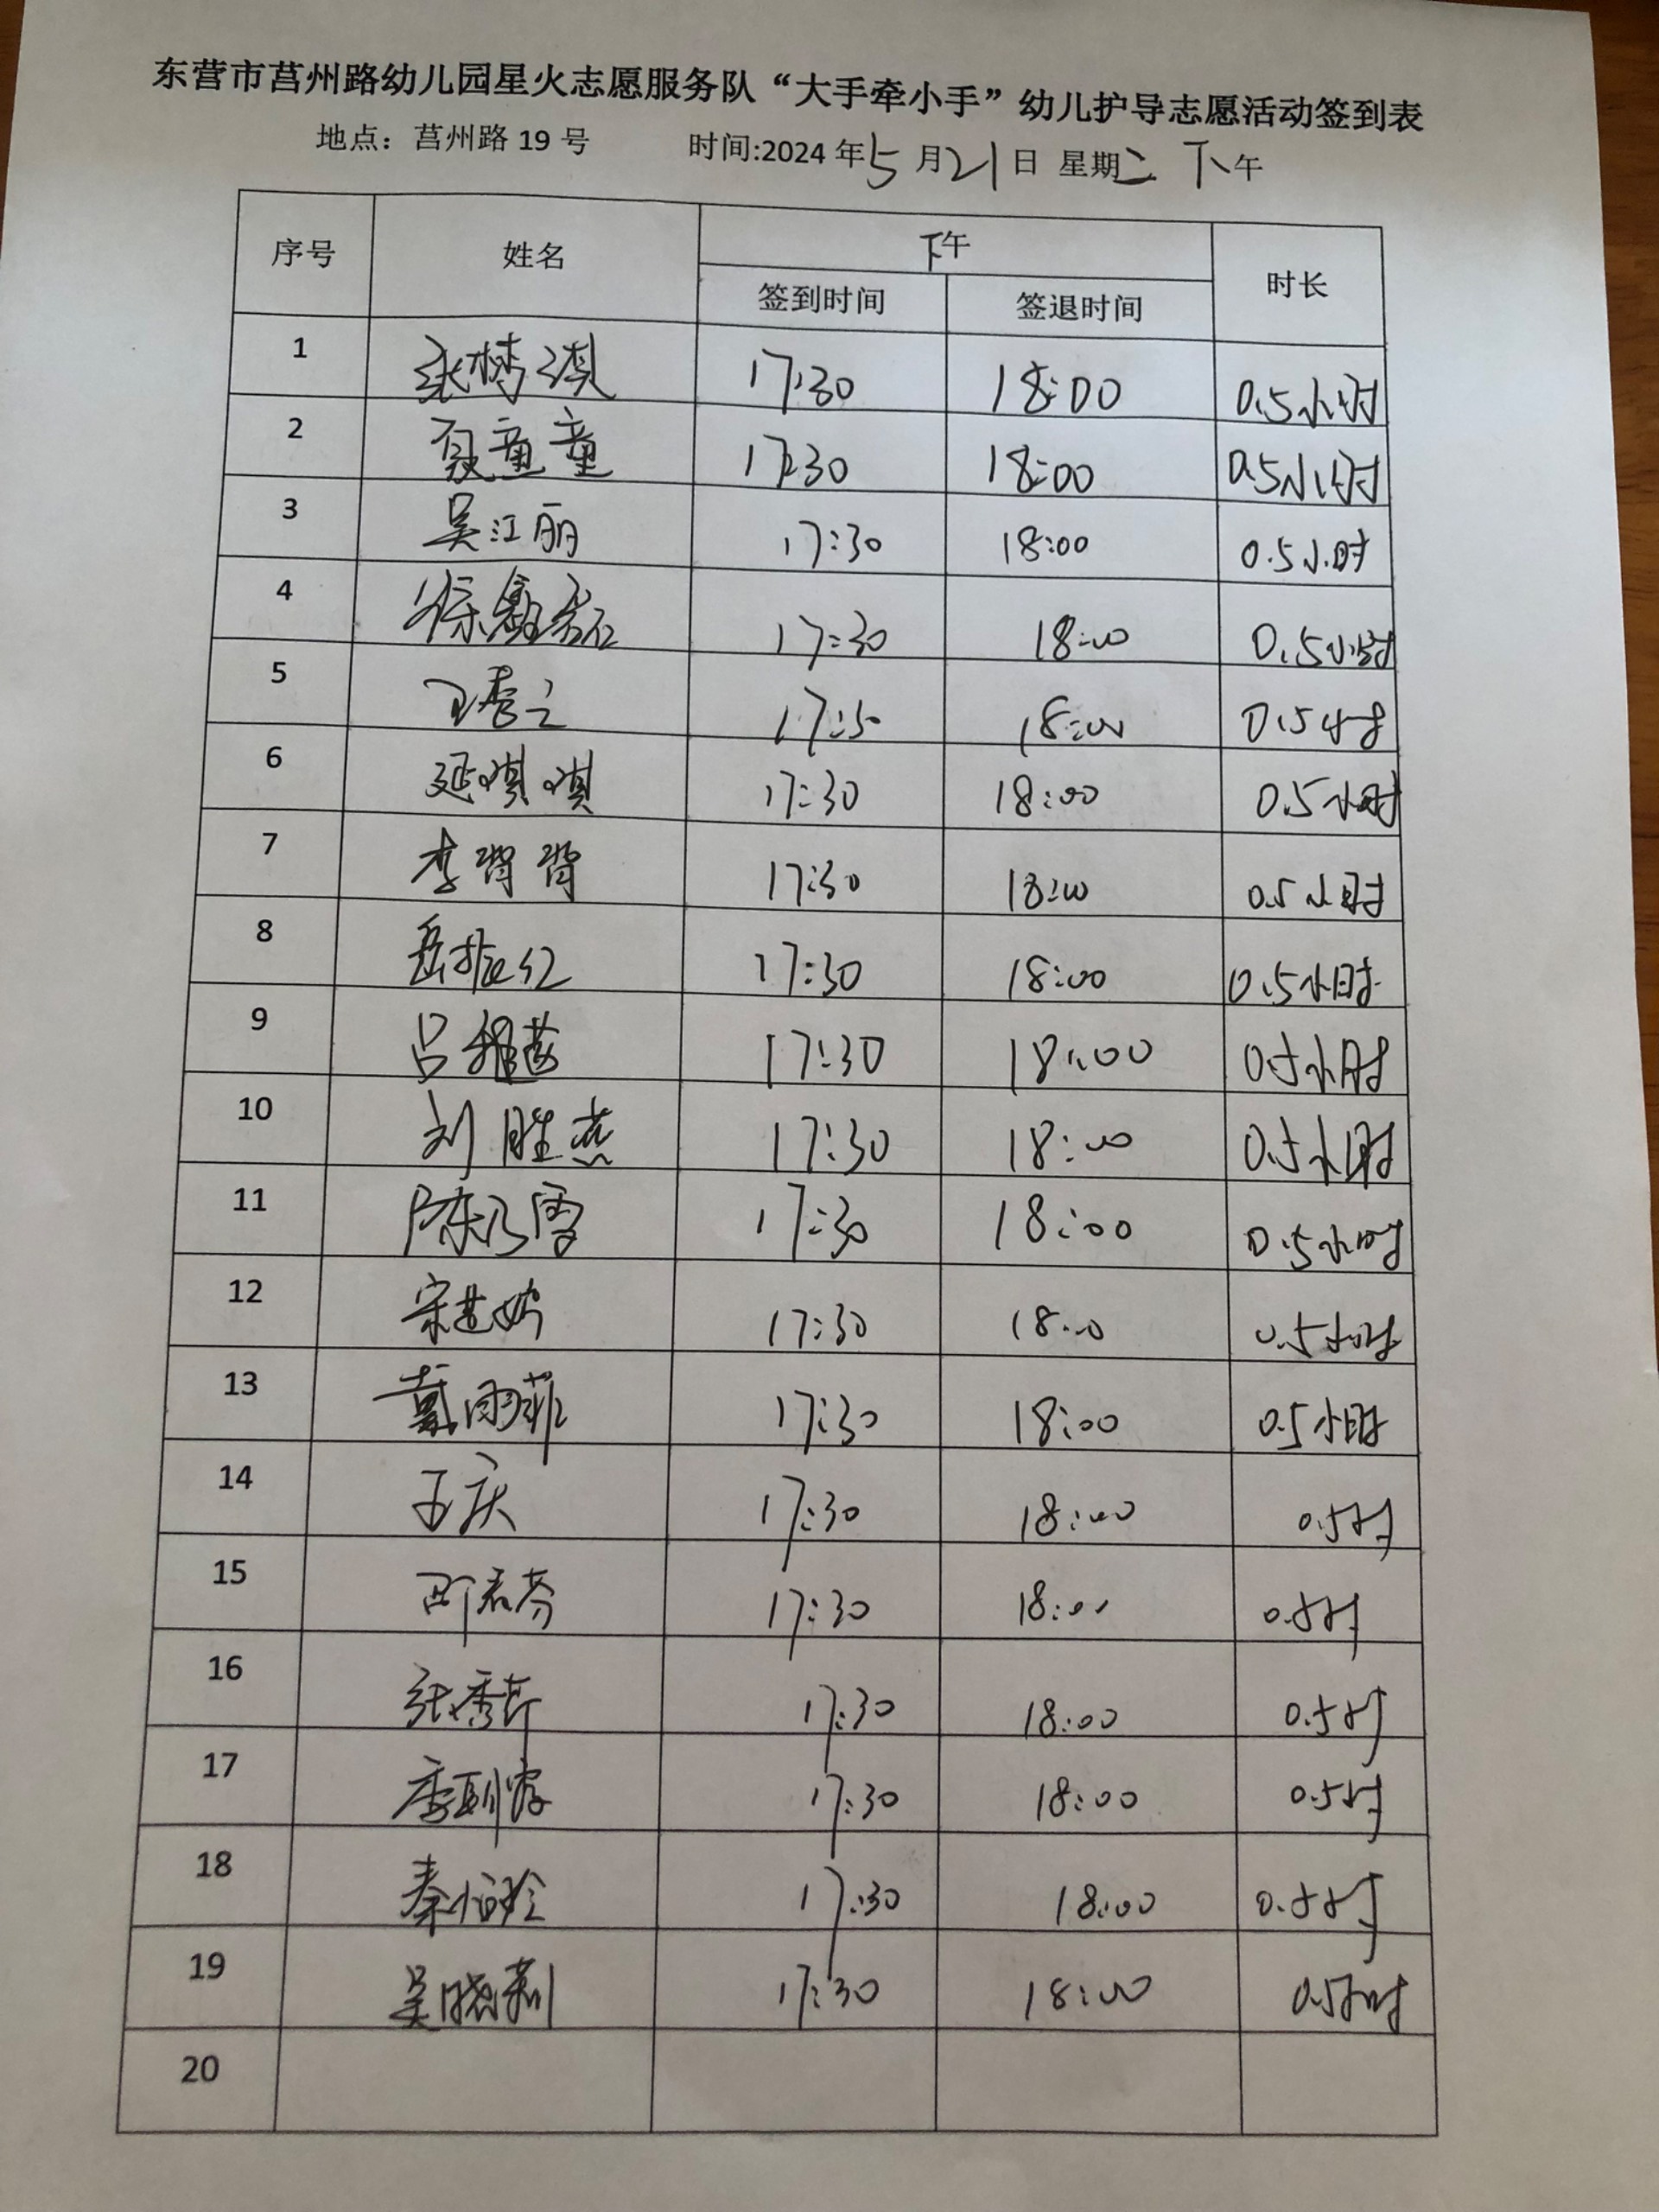 东营市莒州路幼儿园星火志愿服务队“大手牵小手”幼儿护导志愿活动签到表
地点：莒州路 19 号 时间:2024 年5月21日 星期二 下午
序号 姓名 下午 时长
签到时间 签退时间
1 张 17:30 18:00 0.5小时
2 夏童童 17:30 18:00 0.5小时
3 吴江丽 17:30 18:00 0.5小时
4 徐 17:30 18:00 0.5小时
5 17:30 18:00 0.5小时
6 延琪琪 17:30 18:00 0.5小时
7 李 17:30 18:00 0.5小时
8 岳振红 17:30 18:00 0.5小时
9 吕 17:30 18:00 0.5小时
10 刘胜燕 17:30 18:00 0.5小时
11 陈乃雪 17:30 18:00 0.5小时
12 宋 17:30 18:00 0.5小时
13 戴雨菲 17:30 18:00 0.5小时
14 孟庆 17:30 18:00 0.5时
15 17:30 18:00 0.5时
16 张秀芹 17:30 18:00 0.5时
17 李 17:30 18:00 0.5时
18 秦 17:30 18:00 0.5时
19 吴晓莉 17:30 18:00 0.5小时
20